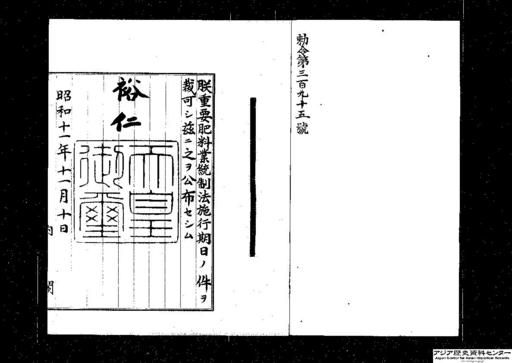 勅令第三百九十五號
朕重要肥料業統制法施行期日ノ件ヲ
裁可シ茲ニ之ヲ公布セシム
裕仁
天皇御璽
昭和十一年十一月十日
内閣
アジア歴史資料センター
Japan Center for Asian Historical Records